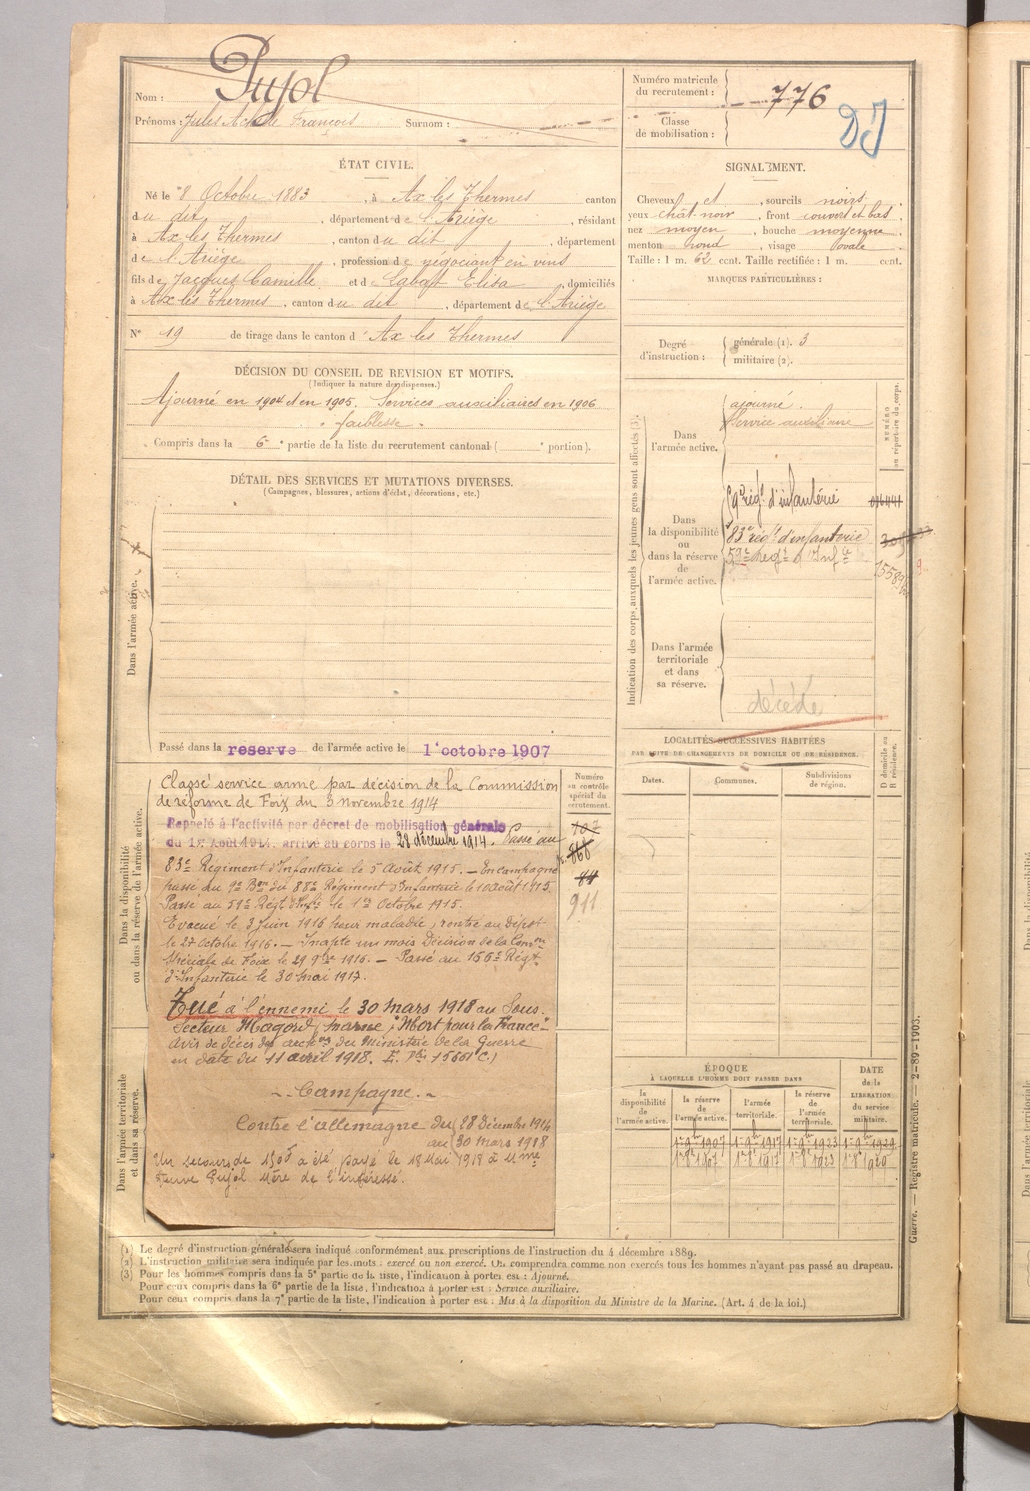 Nom : Pujol
Prénoms : Jules Achille François Surnom :
Numéro matricule du recrutement : 776
Classe de mobilisation :
DJ
ÉTAT CIVIL.
Né le 8 Octobre 1883, à Ax les Thermes canton
du dit, département de l'Ariège, résidant
à Ax les Thermes, canton du dit, département
de l'Ariège, profession de négociant en vins
fils de Jacques Camille et de Elisa, domiciliés
à Ax les Thermes, canton du dit, département de l'Ariège
N° 19 de tirage dans le canton d'Ax les Thermes
SIGNALEMENT.
Cheveux et, sourcils noirs
yeux chât-noir, front couvert et bas,
nez moyen, bouche moyenne
menton rond, visage ovale
Taille : 1 m. 62 cent. Taille rectifiée : 1 m. cent.
MARQUES PARTICULIÈRES :
Degré d'instruction : générale (1). 3
militaire (2).
DÉCISION DU CONSEIL DE REVISION ET MOTIFS.
(Indiquer la nature des dispenses.)
Ajourné en 1904 et en 1905. Services auxiliaires en 1906
faiblesse.
Compris dans la 6e partie de la liste du recrutement cantonal ( e portion).
DÉTAIL DES SERVICES ET MUTATIONS DIVERSES.
(Campagnes, blessures, actions d'éclat, décorations, etc.)
Dans l'armée active.
Passé dans la reserve de l'armée active le 1er octobre 1907
Indication des corps auxquels les jeunes gens sont affectés (3).
NUMÉRO au répertoire du corps.
Dans l'armée active.
ajourné.
Service auxiliaire
Dans la disponibilité ou dans la réserve de l'armée active.
9e régt d'infanterie
83e régt d'infanterie
59e Régt d'Infie
Dans l'armée territoriale et dans sa réserve.
décédé
Dans la disponibilité ou dans la réserve de l'armée active.
Classé service armé par décision de la Commission
de réforme de Foix du 3 novembre 1914
Rappelé à l'activité par décret de mobilisation générale
du 1er Août 1914. arrivé au corps le 28 décembre 1914. Passé au
83e Régiment d'Infanterie le 5 Août 1915. — En campagne
passé au 9e Bon du 88e Régiment d'Infanterie le 10 août 1915.
Passé au 59e Régt d'Infie le 1er Octobre 1915.
Evacué le 3 Juin 1916 pour maladie, rentré au dépôt
le 27 octobre 1916. — Inapte un mois Décision de la Comon
Spéciale de Foix le 29 9bre 1916. — Passé au Régt
d'Infanterie le 30 mai 1917.
Tué à l'ennemi le 30 mars 1918 au Sous.
Secteur Magord, marne, "Mort pour la France"
Avis de décès des du Ministère de la Guerre
en date du 11 avril 1918.
Campagne.
Contre l'allemagne du 28 Décembre 1914
au 30 mars 1918
Un secours de 150f a été payé le 18 Mai 1918 à Mme
Veuve Pujol Mère de l'intéressé.
Numéro au contrôle spécial du recrutement.
107
868
84
911
Dans l'armée territoriale et dans sa réserve.
LOCALITÉS SUCCESSIVES HABITÉES
PAR SUITE DE CHANGEMENTS DE DOMICILE OU DE RÉSIDENCE.
Dates. Communes. Subdivisions de région. D domicile ou R résidence.
ÉPOQUE
À LAQUELLE L'HOMME DOIT PASSER DANS
DATE de la LIBÉRATION du service militaire.
la disponibilité de l'armée active. la réserve de l'armée active. l'armée territoriale. la réserve de l'armée territoriale.
Guerre. — Registre matricule. — 2-89-1903.
(1) Le degré d'instruction générale sera indiqué conformément aux prescriptions de l'instruction du 4 décembre 1889.
(2) L'instruction militaire sera indiquée par les mots : exercé ou non exercé. On comprendra comme non exercés tous les hommes n'ayant pas passé au drapeau.
(3) Pour les hommes compris dans la 5e partie de la liste, l'indication à porter est : Ajourné.
Pour ceux compris dans la 6e partie de la liste, l'indication à porter est : Service auxiliaire.
Pour ceux compris dans la 7e partie de la liste, l'indication à porter est : Mis à la disposition du Ministre de la Marine. (Art. 4 de la loi.)